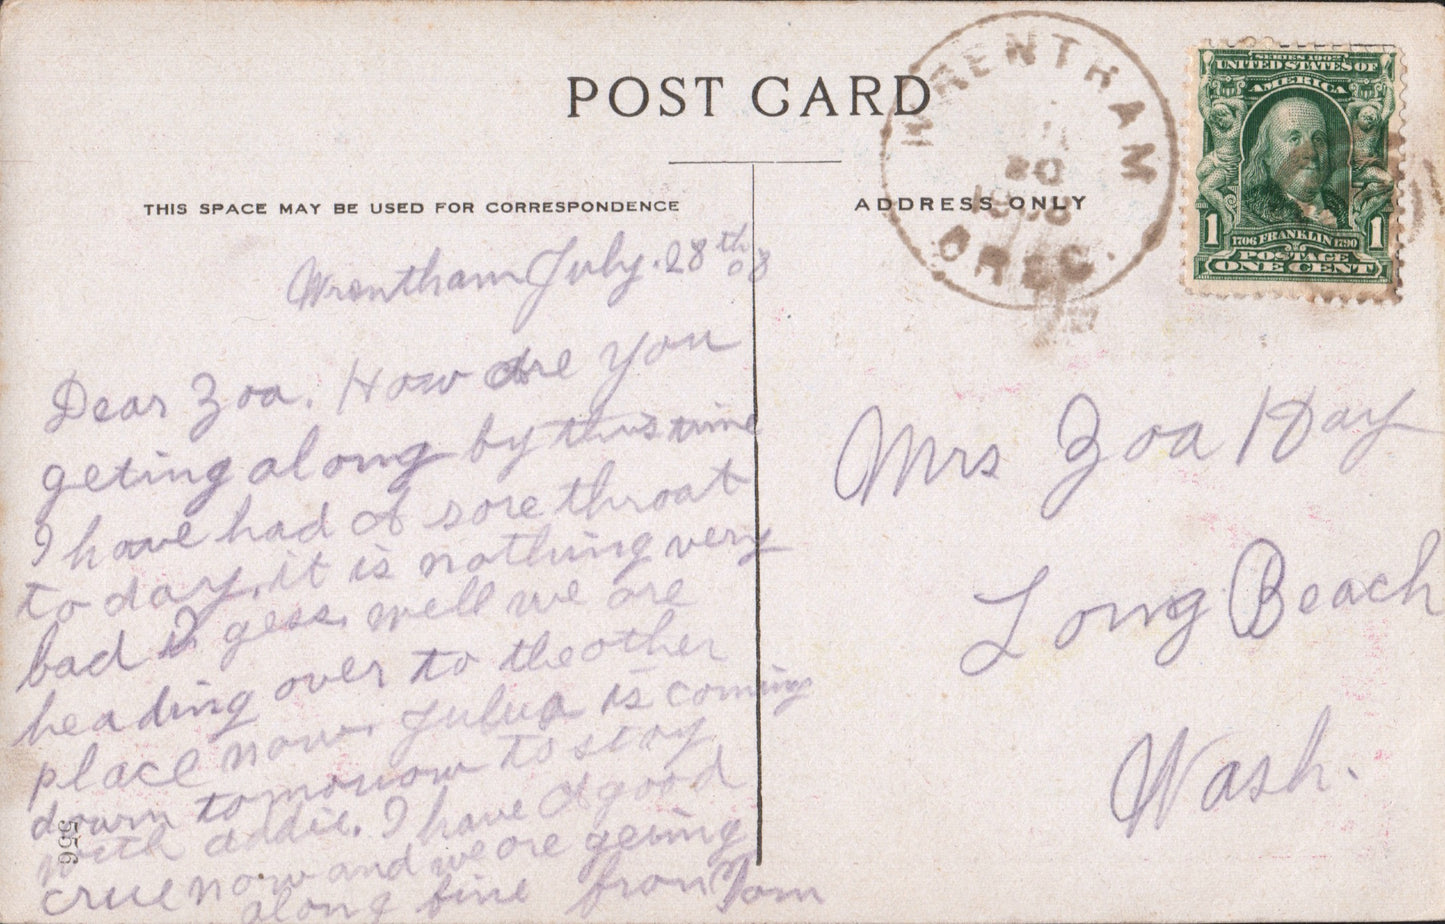 POST CARD
THIS SPACE MAY BE USED FOR CORRESPONDENCE
Wrentham July. 28th 08
Dear Zoa. How are you
geting along by this time
I have had A sore throat
to day. it is nothing very
bad I gess. well we are
heading over to the other
place now. Julua is coming
down tomorrow to stay
with addie. I have A good
crue now and we are geting
along fine from Tom
556
WRENTHAM
30
1908
OREG.
SERIES 1902
UNITED STATES OF
AMERICA
1 1
1706 FRANKLIN 1790
POSTAGE
ONE CENT
ADDRESS ONLY
Mrs Zoa Hay
Long Beach
Wash.